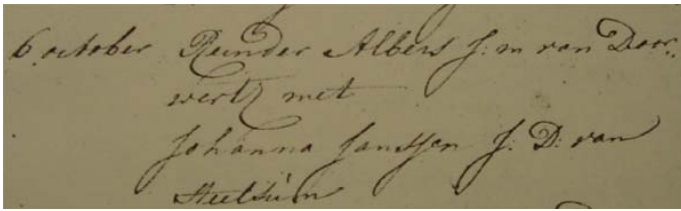 6 october Reinder Albers J: m van Door.
wertz met
Johanna Janssen J: D: van
Heelsúm